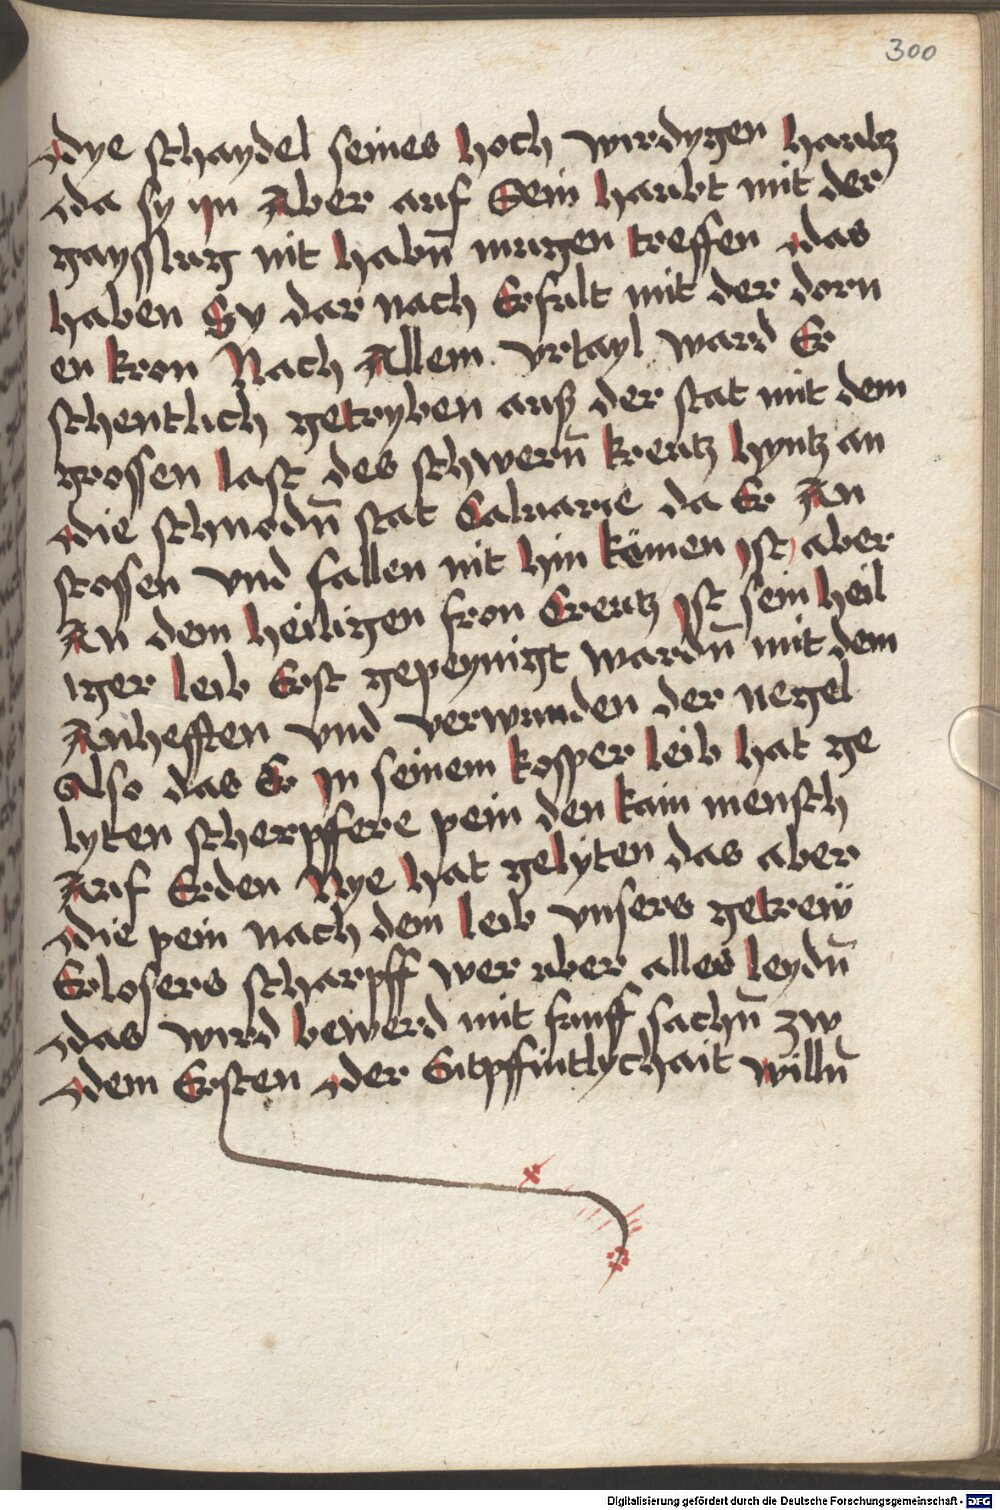 300
Dye schaydel seines hoch wirdygen haubtz
da sy jn Aber auf Sein haubt mit der
gaysslug nit habn̄ mugen treffen das
haben Sy dar nach Erfult mit der dorn
en kron Nach Allem vrtayl ward Er
schentlich getryben auß der stat mit dem
grossen last des schwern̄ kreutz hyntz an
die schnodn̄ stat Caluarie da Er An
stossen vnd fallen nit hin kömen jst aber
An dem heiligen fron Creutz jst sein heil
iger leib Erst gepeynigt wardn̄ mit dem
Anhefften vnd verwunden der negel
Also das Er jn seinem kosper leib hat ge
lyten scherpffere pein den kain mensch
Auf Erden Nye hat gelyten das aber
die pein nach dem leib vnsers getreẅ
Erlosers scharpff wer uber alles leydn̄
das wird bewerd mit funff sachn̄ zw
dem Ersten der Entpfintlychait willn̄
Digitalisierung gefördert durch die Deutsche Forschungsgemeinschaft - DFG